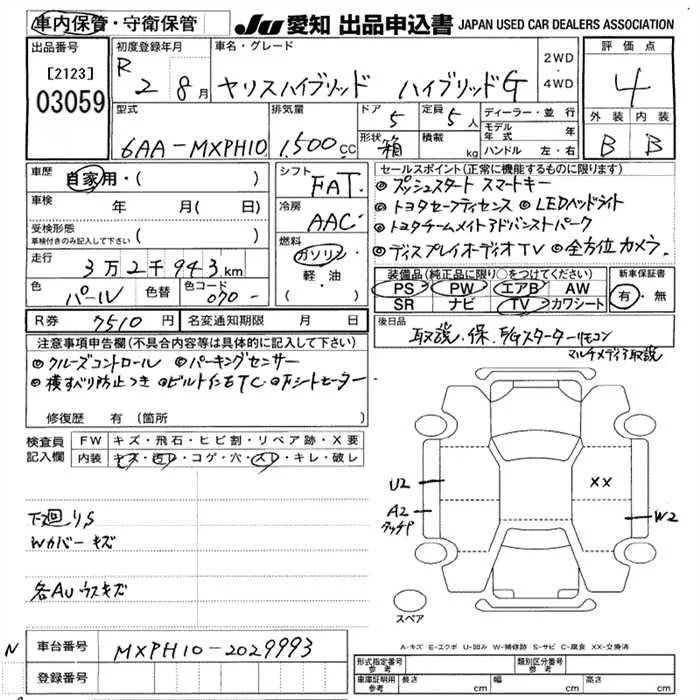 車内保管・守衛保管
JU 愛知 出品申込書 JAPAN USED CAR DEALERS ASSOCIATION
出品番号
[2123]
03059
初度登録年月
R 2 8月
車名・グレード
ヤリスハイブリッド ハイブリッドG
2WD
・
4WD
評価点
4
型式
6AA-MXPH10
排気量
1,500cc
ドア
5
定員
5人
形状
箱
積載
kg
ディーラー・並行
モデル年式 年
ハンドル 左・右
外装 内装
B B
車歴
自家用・( )
車検
年 月( 日)
受検形態
車検付きのみ記入して下さい
( )
走行
3万2千943km
色
パール
色替
色コード
070-
シフト
FAT
冷房
AAC
燃料
ガソリン
・
軽・油
( )
セールスポイント(正常に機能するものに限ります)
◎プッシュスタート スマートキー
◎トヨタセーフティセンス ◎LEDヘッドライト
◎トヨタチームメイトアドバンストパーク
◎ディスプレイオーディオTV ◎全方位カメラ
装備品(純正品に限り○をつけてください)
PS PW エアB AW
SR ナビ TV カワシート
新車保証書
有・無
R券 7510円 名変通知期限 月 日
後日品
取説・保・E/Gスターターリモコン
マルチメディア取説
注意事項申告欄(不具合内容等は具体的に記入して下さい)
◎クルーズコントロール ◎パーキングセンサー
◎横すべり防止つき ◎ビルトインETC ◎Fシートヒーター
修復歴 有 (箇所 )
検査員
記入欄
FW キズ・飛石・ヒビ割・リペア跡・X要
内装 キズ・凹レ・コゲ・穴・スレ・キレ・破レ
下廻りS
Wカバーキズ
各AUウスキズ
U2
A2
タッチP
XX
W2
スペア
A-キズ E-エクボ U-凹み W-補修跡 S-サビ C-腐食 XX-交換済
N
車台番号 MXPH10-2029993
登録番号
形式指定番号
参考
類別区分番号
参考
車庫証明用
参考
長さ cm 幅 cm 高さ cm